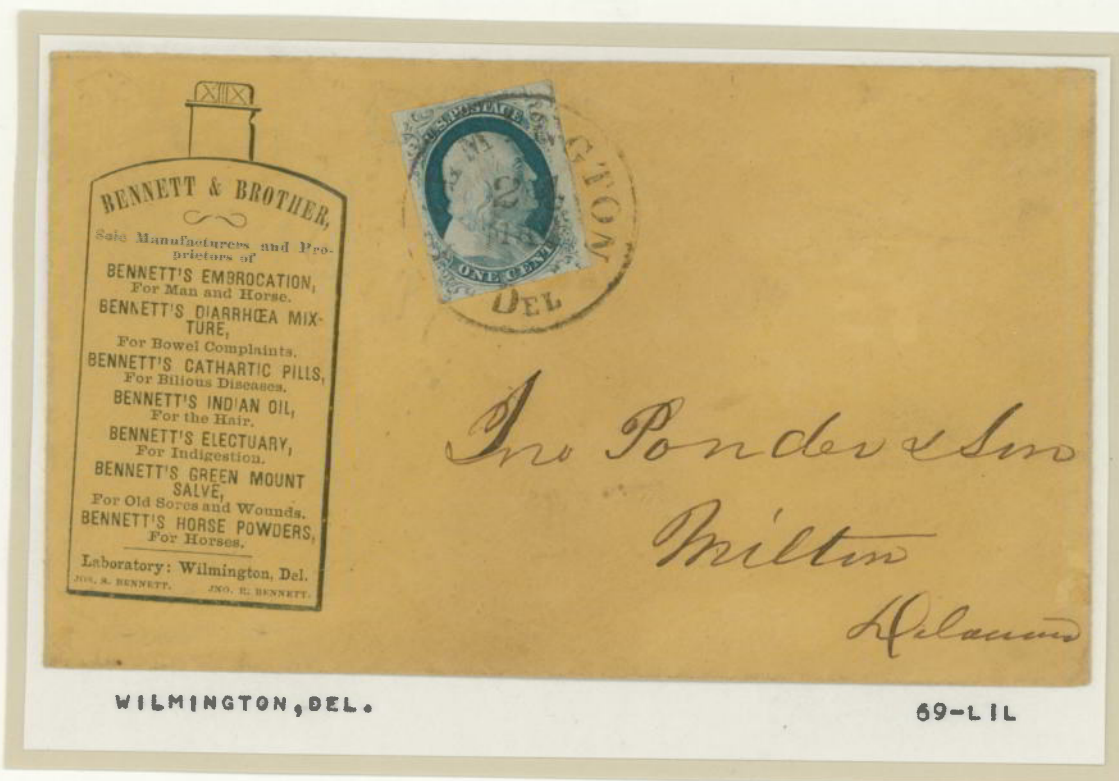 BENNETT & BROTHER,
Sole Manufacturers and Pro-
prietors of
BENNETT'S EMBROCATION,
For Man and Horse.
BENNETT'S DIARRHŒA MIX-
TURE,
For Bowel Complaints.
BENNETT'S CATHARTIC PILLS,
For Bilious Diseases.
BENNETT'S INDIAN OIL,
For the Hair.
BENNETT'S ELECTUARY,
For Indigestion.
BENNETT'S GREEN MOUNT
SALVE,
For Old Sores and Wounds.
BENNETT'S HORSE POWDERS,
For Horses.
Laboratory: Wilmington, Del.
JOS. S. BENNETT. JNO. E. BENNETT.
U.S. POSTAGE
ONE CENT
GTON
2
DEL
Jno Ponder & Son
Milton
Delaware
WILMINGTON, DEL.
69-LIL